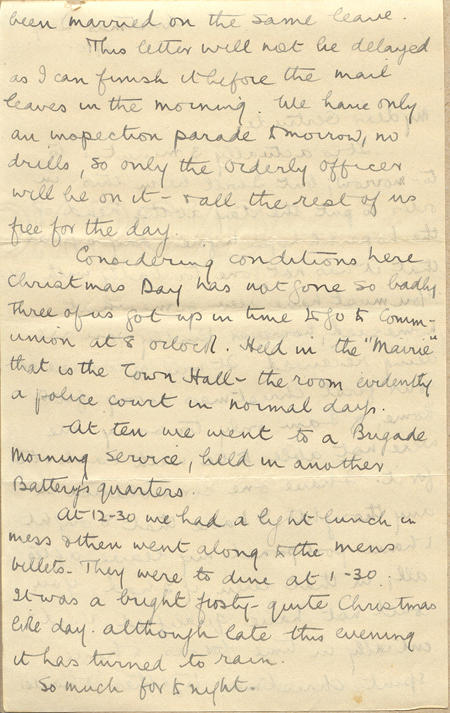 been married on the same leave.
This letter will not be delayed
as I can finish it before the mail
leaves in the morning. We have only
an inspection parade tomorrow, no
drills, so only the orderly officer
will be on it - & all the rest of us
free for the day.
Considering conditions here
Christmas Day has not gone so badly
Three of us got up in time to go to Comm-
union at 8 oclock. Held in the "Mairie"
that is the Town Hall - the room evidently
a police court in normal days.
At ten we went to a Brigade
Morning Service, held in another
Battery's quarters.
At 12-30 we had a light lunch in
mess & then went along to the mens
billets. They were to dine at 1-30.
It was a bright frosty - quite Christmas
like day. although late this evening
it has turned to rain.
So much for to night.